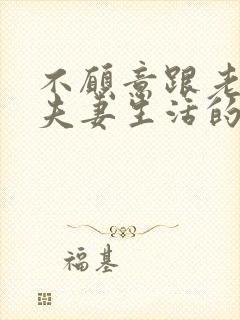 不愿意跟老
夫妻生活的
福基